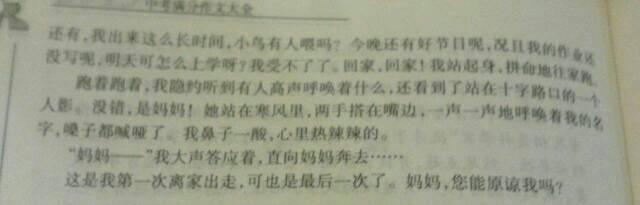 中考满分作文大全
还有,我出来这么长时间,小鸟有人喂吗?今晚还有好节目呢,况且我的作业还
没写呢,明天可怎么上学呀?我受不了了。回家,回家!我站起身,拼命地往家跑。
跑着跑着,我隐约听到有人高声呼唤着什么,还看到了站在十字路口的一个
人影。没错,是妈妈!她站在寒风里,两手搭在嘴边,一声一声地呼唤着我的名
字,嗓子都喊哑了。我鼻子一酸,心里热辣辣的。
“妈妈——”我大声答应着,直向妈妈奔去……
这是我第一次离家出走,可也是最后一次了。妈妈,您能原谅我吗?